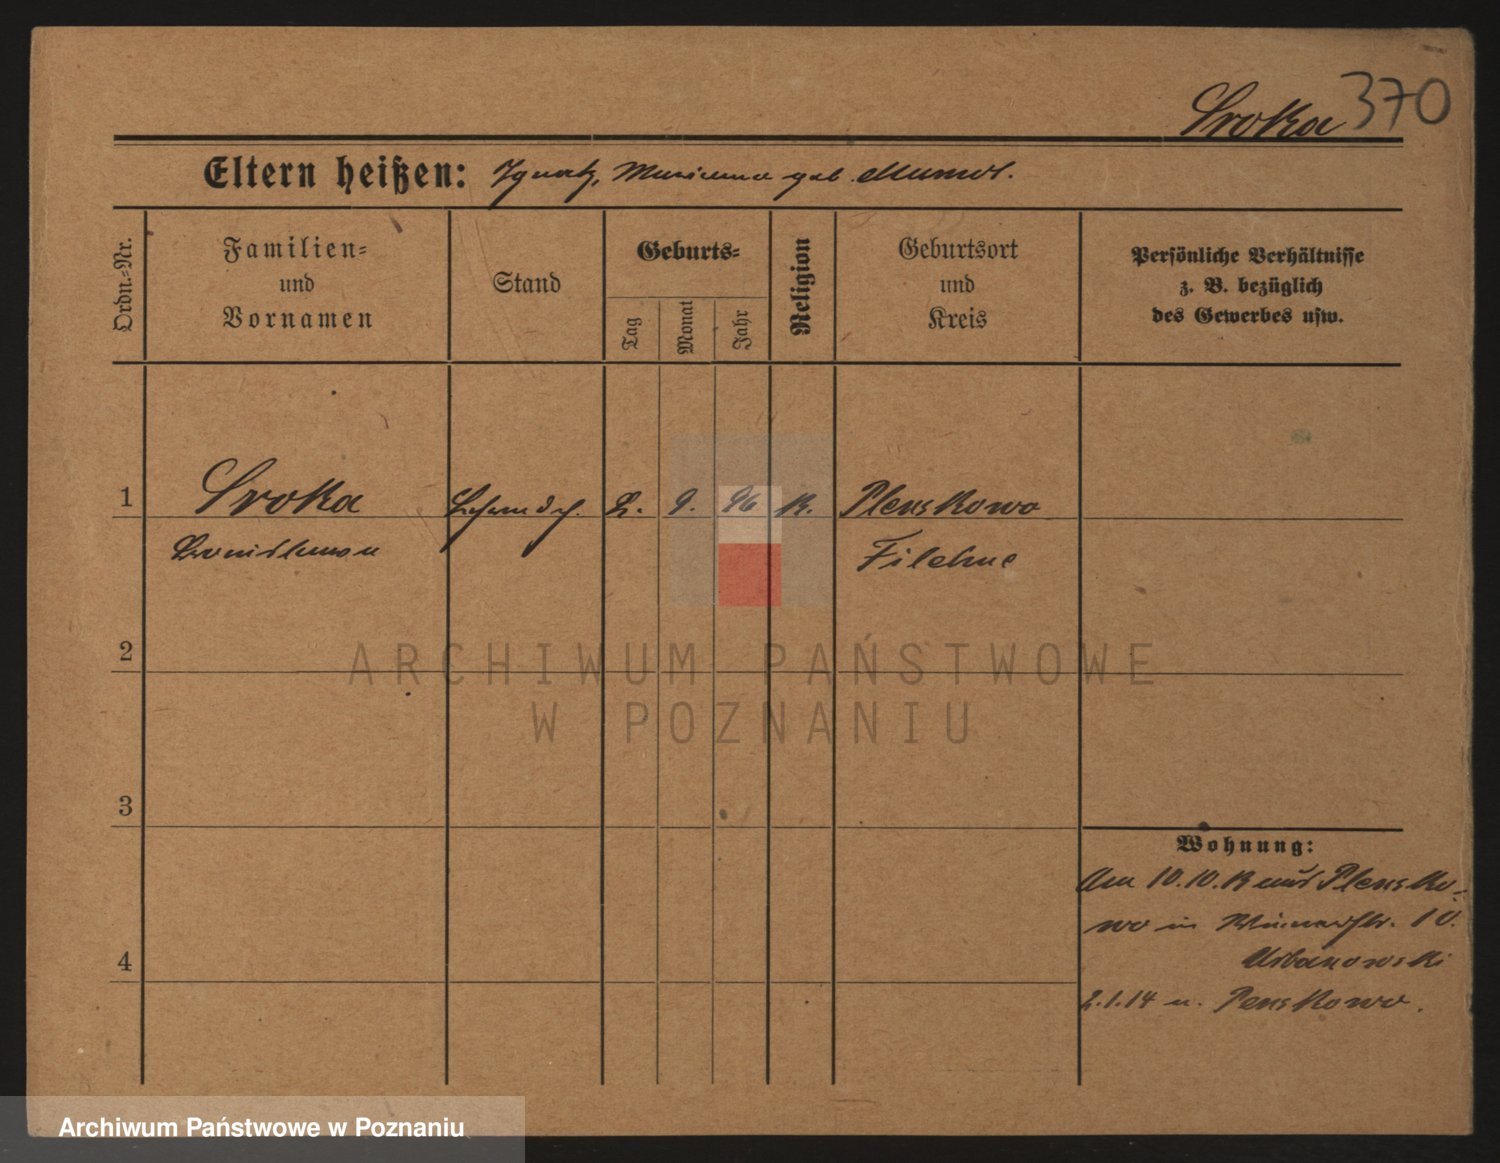 Sroka 370
Eltern heißen: Ignatz, Marianna geb.
Ordn.-Nr.
Familien-
und
Vornamen
Stand
Geburts-
Tag
Monat
Jahr
Religion
Geburtsort
und
Kreis
Persönliche Verhältnisse
z. B. bezüglich
des Gewerbes usw.
1 Sroka 2. 9. 96 K. Plenskowo
Filehne
2
ARCHIWUM PAŃSTWOWE
W POZNANIU
3
Wohnung:
Am 10.10.13 aus Plensko-
wo in 10.
4
Urbanowski
2.1.14 n. Penskowo.
Archiwum Państwowe w Poznaniu